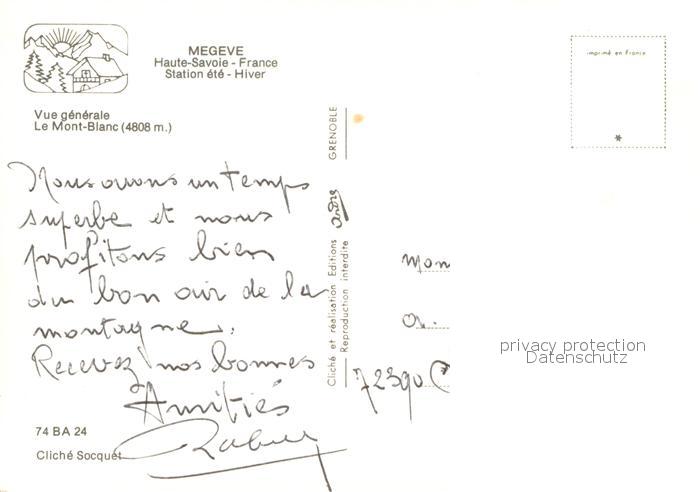 MEGEVE
Haute-Savoie - France
Station été - Hiver
Vue générale
Le Mont-Blanc (4808 m.)
imprimé en France
Nous avons un temps
superbe et nous
profitons bien
du bon air de la
montagne.
Recevez nos bonnes
Amitiés
74 BA 24
Cliché Socquet
GRENOBLE
André
Cliché et réalisation Editions
Reproduction interdite
72390
privacy protection
Datenschutz